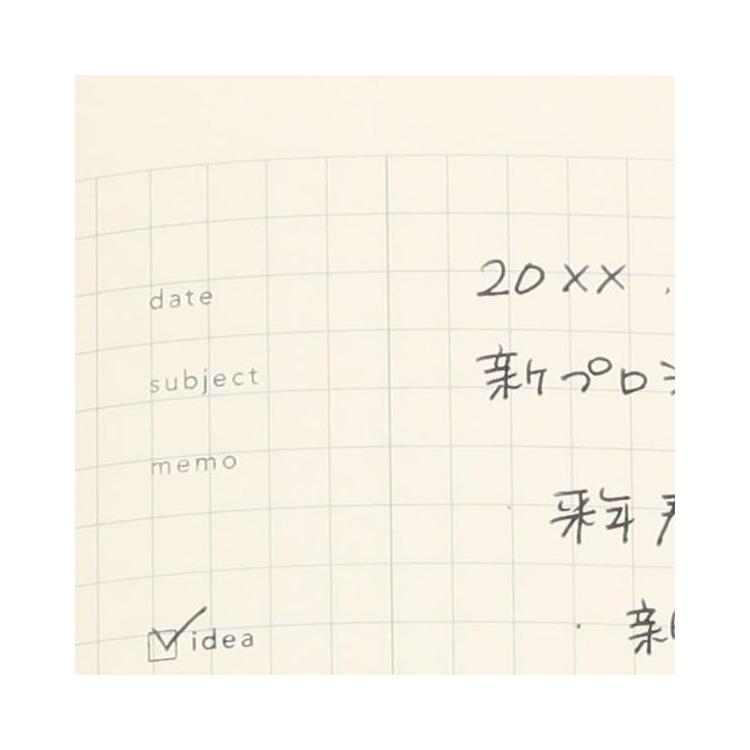 date 20XX.
subject 新プロジ
memo
来年度
idea